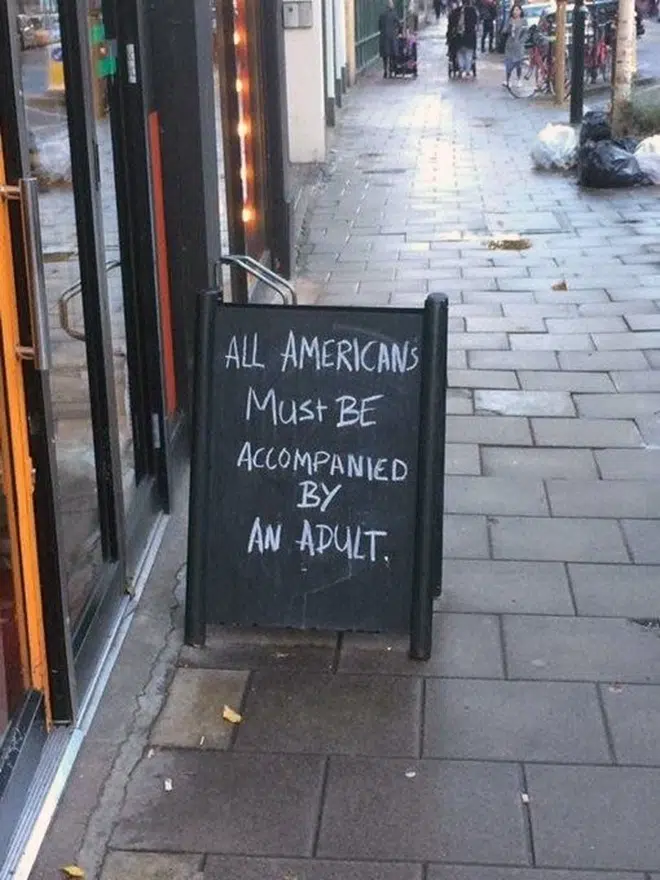 ALL AMERICANS
MUSt BE
ACCOMPANIED
BY
AN ADULT.